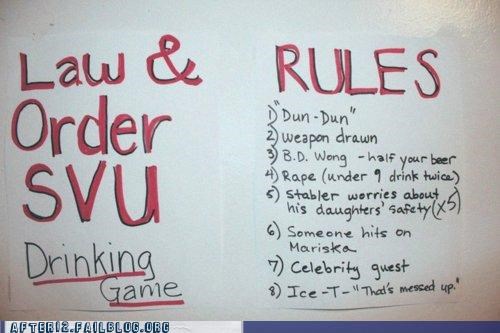 Law &
Order
SVU
Drinking
Game
RULES
1) "Dun-Dun"
2) weapon drawn
3) B.D. Wong - half your beer
4) Rape (under 9 drink twice)
5) Stabler worries about
his daughters' safety (x5)
6) Someone hits on
Mariska
7) Celebrity guest
8) Ice-T- "That's messed up."
AFTER12.FAILBLOG.ORG